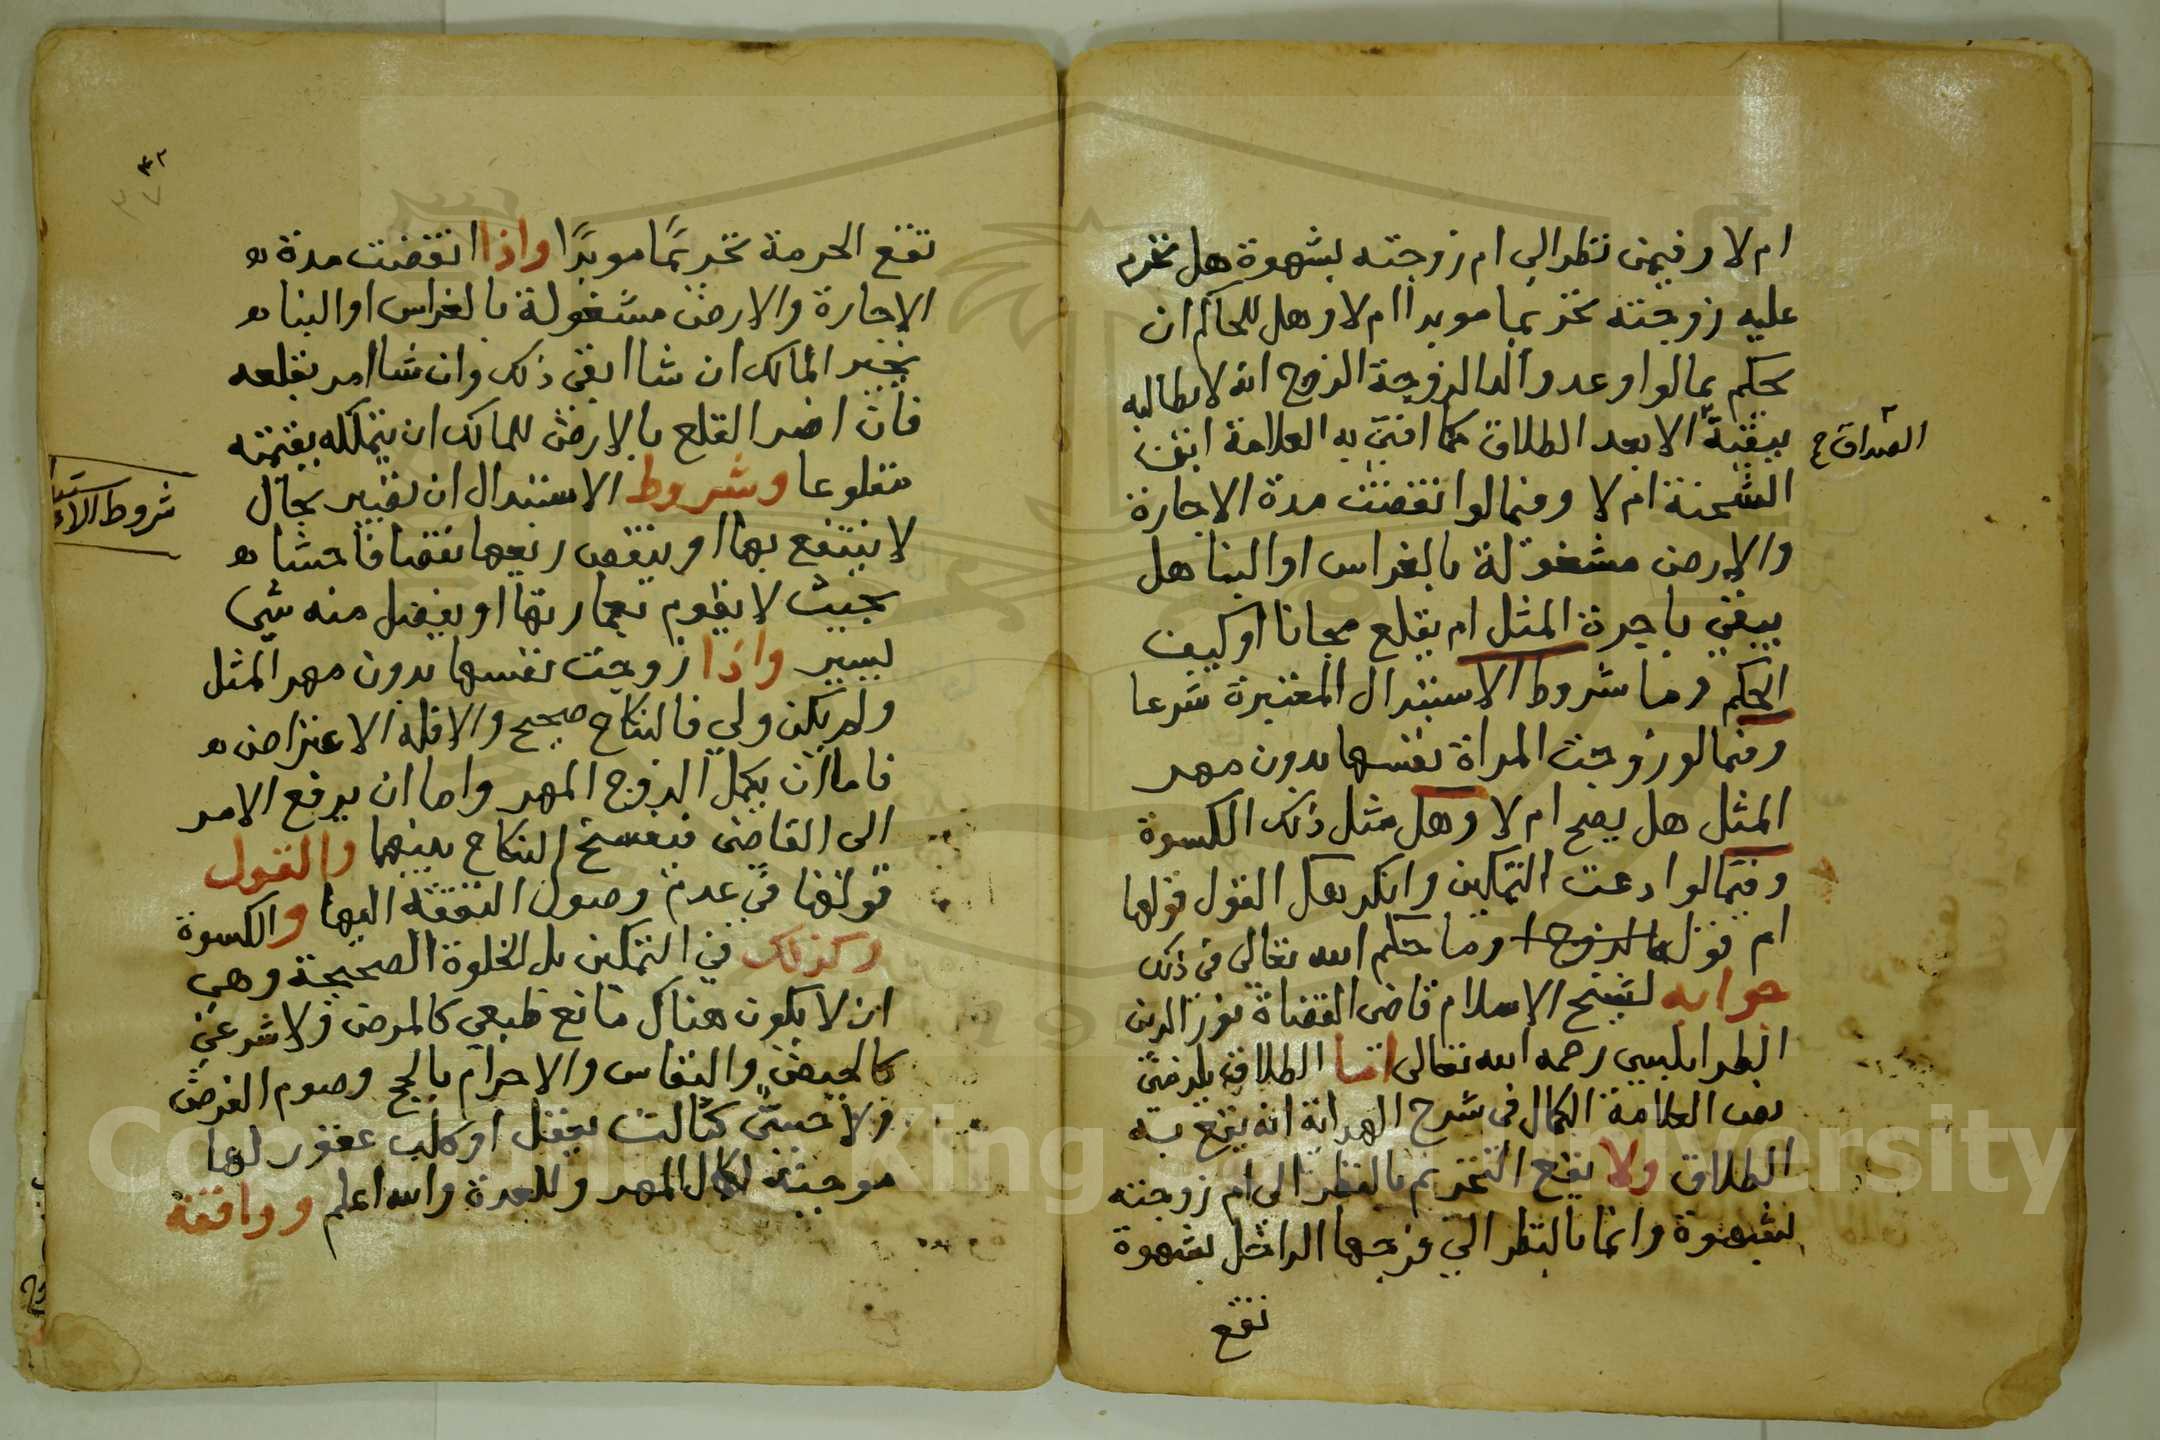 ام لا وفيمن نظر الى ام زوجته بشهوة هل تحرم
عليه زوجته تحريما موبدا ام لا وهل للحاكم ان
يحكم بما لو اوعد والد الزوجة الزوج انه لا يطالبه
ببقية الا بعد الطلاق كما افتى به العلامة ابن
الصداق ح
الشحنة ام لا وفيما لو انقضت مدة الاجارة
والارض مشغولة بالغراس او البنا هل
يبقي باجرة المثل ام يقلع مجانا او كيف
الحكم وما شروط الاستبدال المعتبرة شرعا
وفيما لو زوجت المراة نفسها بدون مهر
المثل هل يصح ام لا وهل مثل ذلك الكسوة
وفيما لو ادعت التمكين وانكر هل القول قولها
ام قول الزوج وما حكم الله تعالى في ذلك
جوابه لشيخ الاسلام قاضى القضاة نور الدين
الطرابلسي رحمه الله تعالى اما الطلاق بلرضى
العلامة الكمال في شرح الهداية انه يقع به
الطلاق ولا يقع التحريم بالنظر الى ام زوجته
بشهوة وانما بالنظر الي فرجها الداخل بشهوة
تقع
تقع الحرمة تحريمًا موبدًا واذا انقضت مدة
الاجارة والارض مشغولة بالغراس او البنا
يخير المالك ان شا ابقى ذلك وان شا امر بقلعه
فان اضر القلع بالارض للمالك ان يتملكه بقيمته
مقلوعا وشروط الاستبدال ان تصير بحال
شروط الاستبد
لا ينتفع بها او ينقص ريعها نقصا فاحشا
بحيث لا يقوم بعمارتها او يفضل منه شي
يسير واذا زوجت نفسها بدون مهر المثل
ولم يكن ولي فالنكاح صحيح والا فله الاعتراض
فاما ان يكمل الزوج المهر واما ان يرفع الامر
الى القاضى فيفسخ النكاح بينهما والقول
قولها في عدم وصول النفقة اليها والكسوة
وكذلك في التمكين بل الخلوة الصحيحة وهي
ان لا يكون هناك مانع طبعي كالمرض ولا شرعي
كالحيض والنفاس والاحرام بالحج وصوم الفرض
ولا حسى كثالث يعقل او كلب عقور لها
موجبة لكمال المهر وللعدة والله اعلم ووافقه